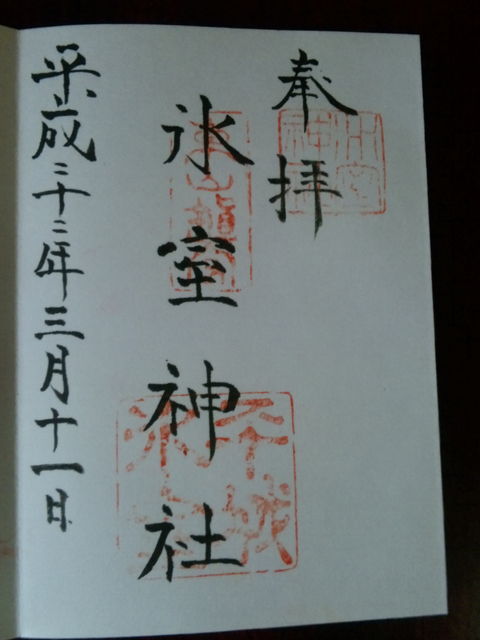 奉拝
氷室神社
平成二十二年三月十一日